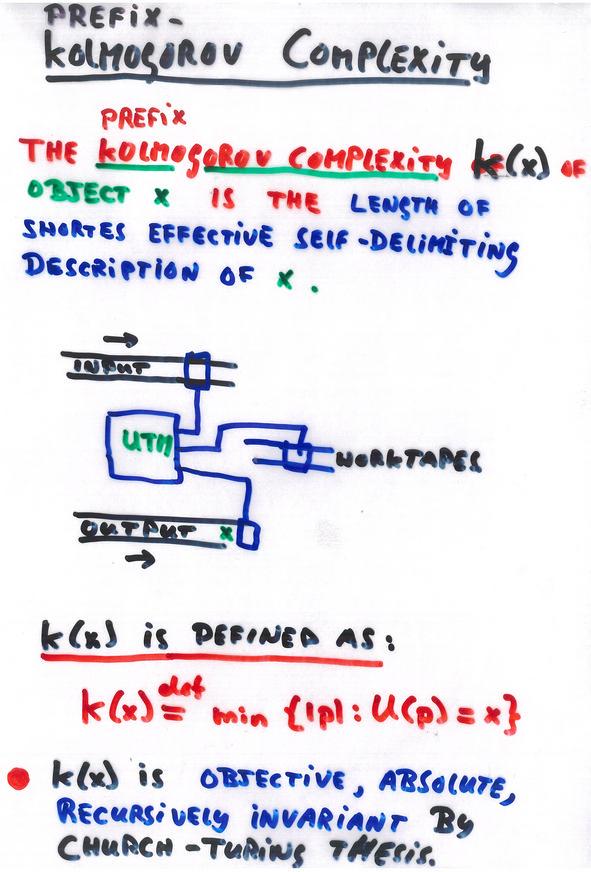 PREFIX-
KOLMOGOROV COMPLEXITY
PREFIX
THE KOLMOGOROV COMPLEXITY K(x) OF
OBJECT X IS THE LENGTH OF
SHORTES EFFECTIVE SELF-DELIMITING
DESCRIPTION OF X.
INPUT
UTM
WORKTAPES
OUTPUT X
K(x) IS DEFINED AS:
K(x) =def min {|p|: U(p) = x}
K(x) IS OBJECTIVE, ABSOLUTE,
RECURSIVELY INVARIANT BY
CHURCH-TURING THESIS.